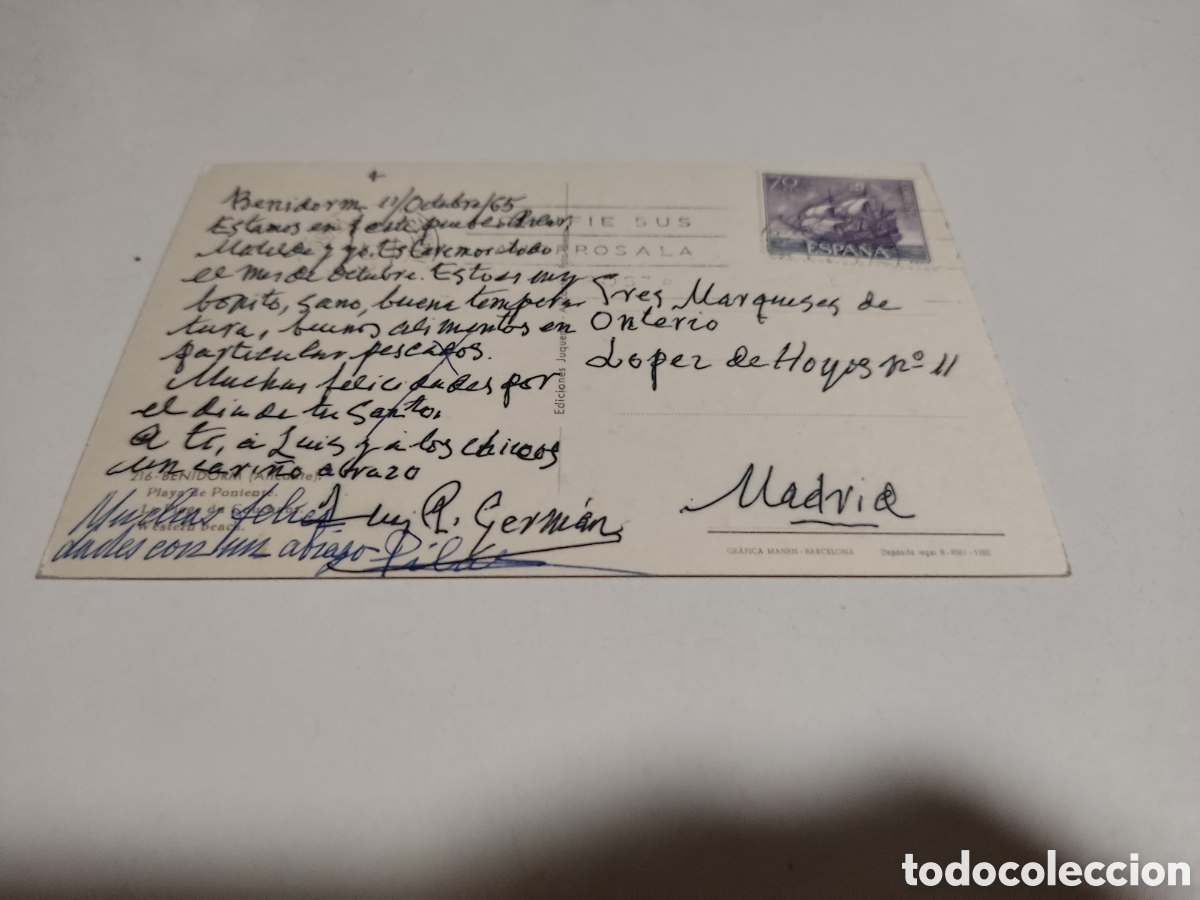 Benidorm 11/Octubre/65
Estamos en este pueblo Pilar,
Matilde y yo. Estaremos todo
el mes de Octubre. Esto es muy
bonito, sano, buena tempera
tura, buenos alimentos en
particular pescados.
Muchas felicidades por
el dia de tu Santo,
A ti, a Luis y a los chicos
un cariño abrazo
216-BENIDORM (Alicante).
Playa de Poniente.
Western Beach.
Muchas felici
dades con un abrazo Pilar
R. Germán
Ediciones Juque
FIE SUS
RROS A LA
70
ESPAÑA
Sres Marqueses de
Onterio
Lopez de Hoyos nº 11
Madrid
GRÁFICA MANEN - BARCELONA
Depósito legal B.-
todocoleccion